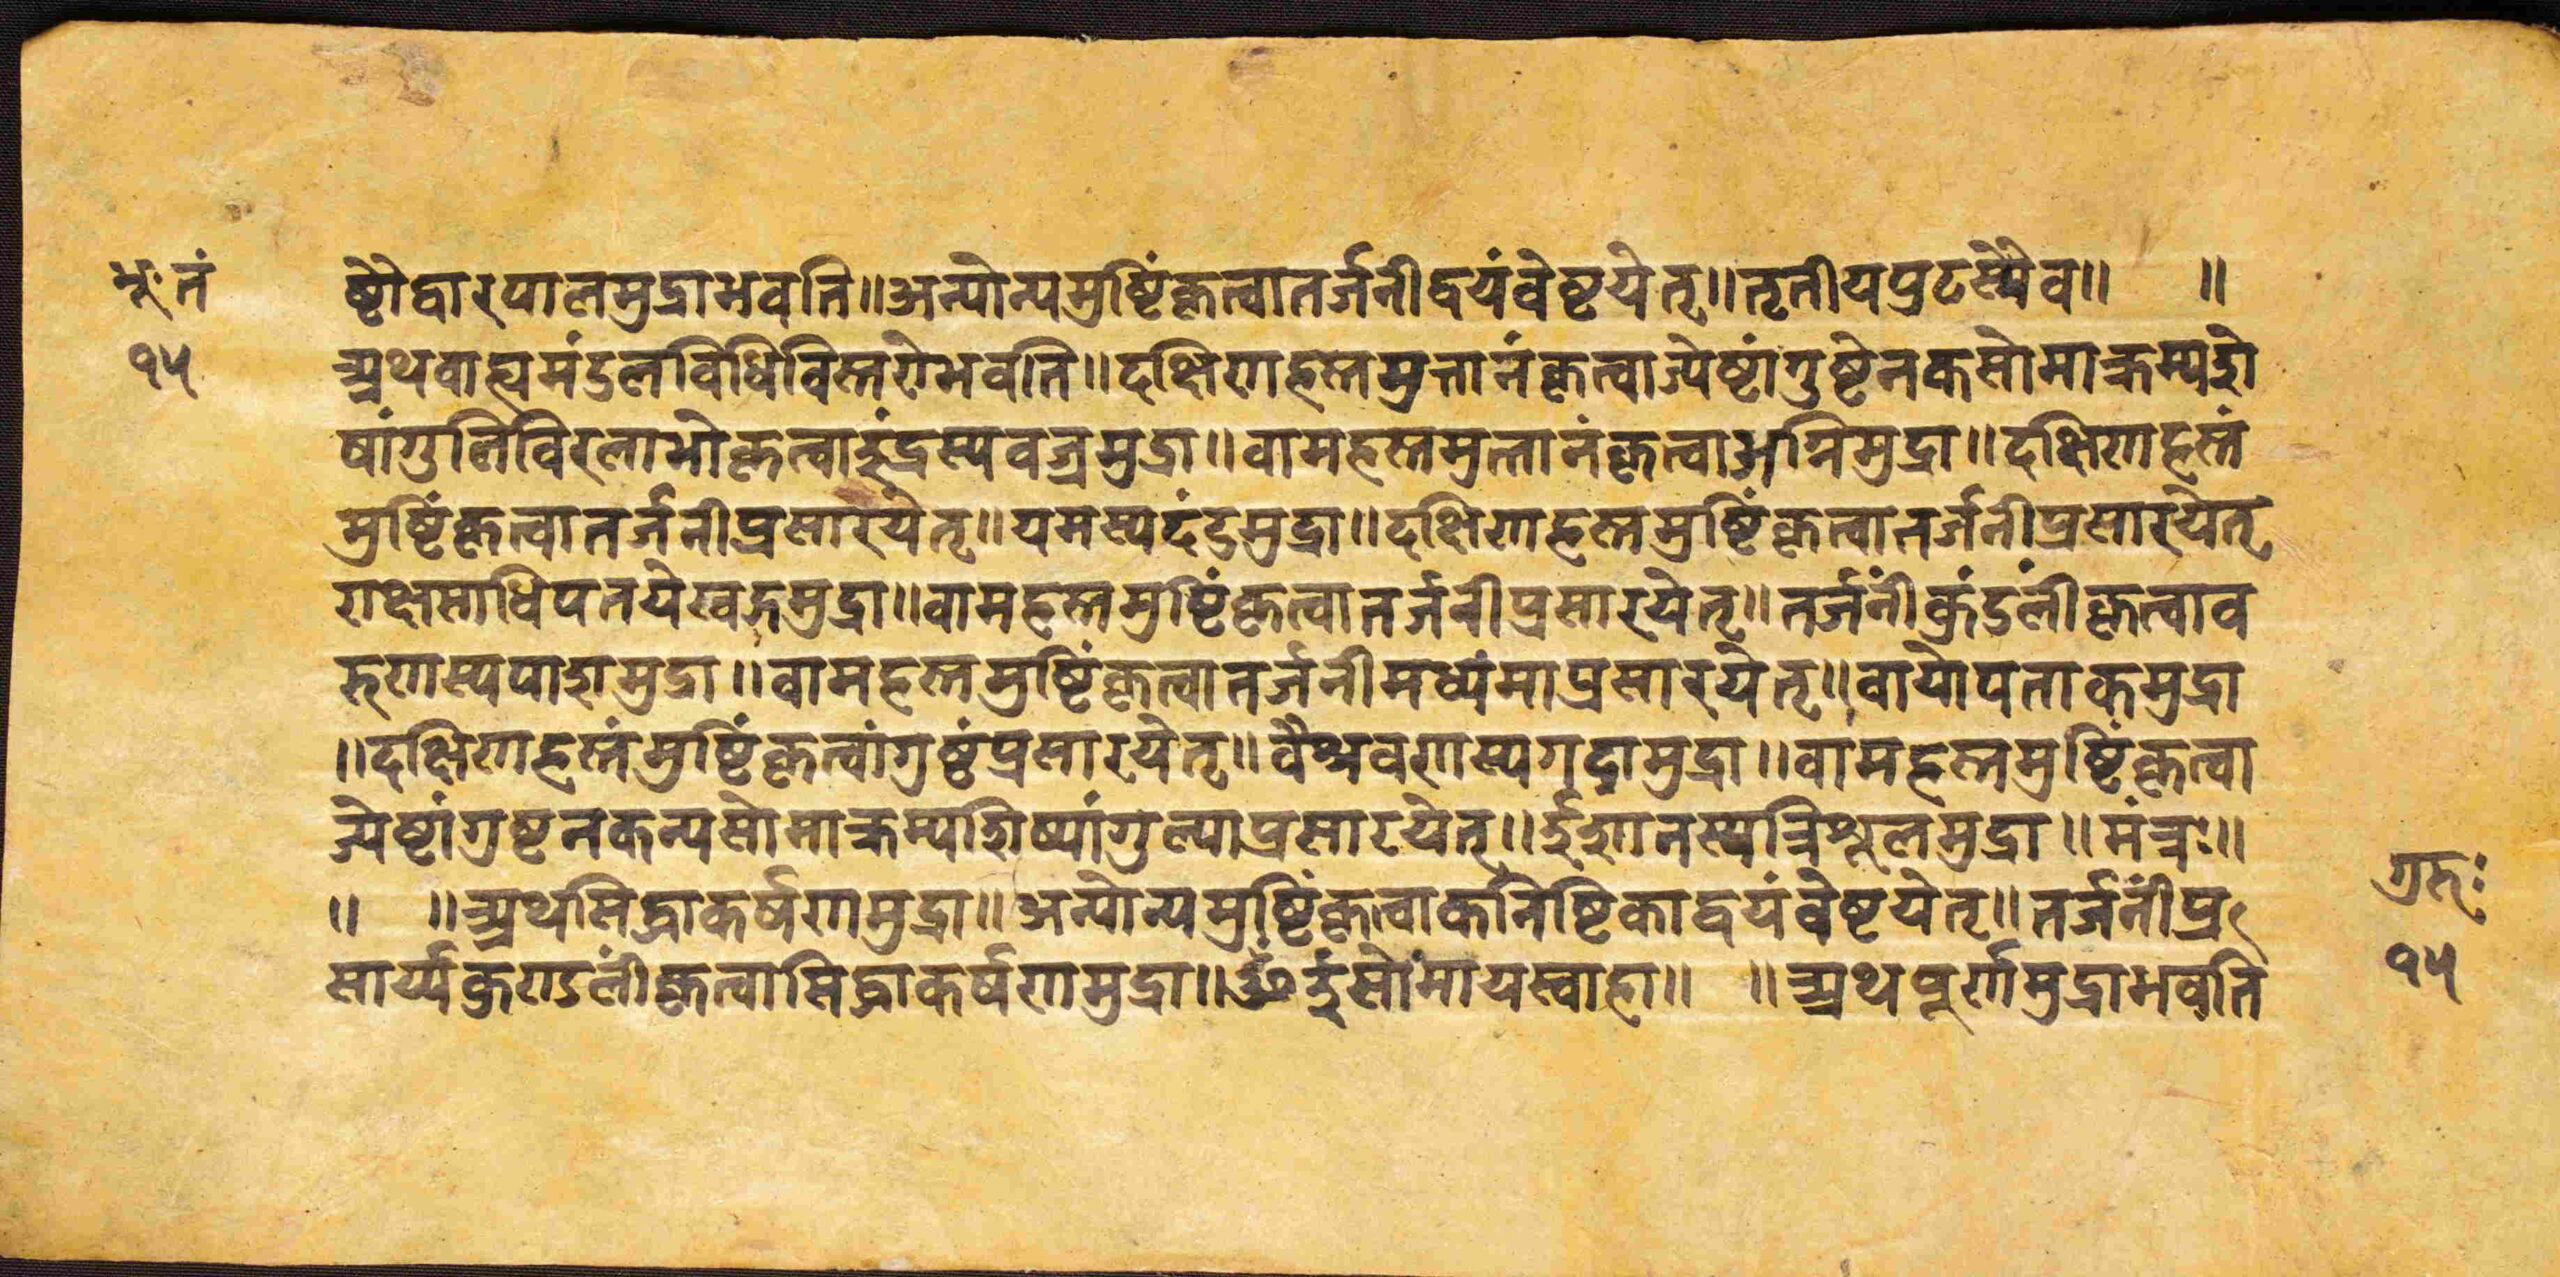 भूः तं
१५
ष्टौद्वारपालमुद्राभवति॥अन्योन्यमुष्टिंकृत्वातर्जनीद्वयंवेष्टयेत्॥तृतीयप्रटस्यैव॥ ॥
अथवाह्यमंडलविधिविस्तरोभवति॥दक्षिणहस्तमुत्तानंकृत्वाज्येष्टांगुष्टेनकसोमाक्रम्यशे
षांगुलिविरलाभोकृत्वाइंद्रस्यवज्रमुद्रा॥वामहस्तमुत्तानंकृत्वाअग्निमुद्रा॥दक्षिणहस्तं
मुष्टिंकृत्वातर्जनीप्रसारयेत्॥यमस्यदंडमुद्रा॥दक्षिणहस्तमुष्टिंकृत्वातर्जनीप्रसारयेत्
राक्षसाधिपतयेखड्गमुद्रा॥वामहस्तमुष्टिंकृत्वातर्जनीप्रसारयेत्॥तर्जनींकुंडलींकृत्वाव
रुणस्यपाशमुद्रा॥वामहस्तमुष्टिंकृत्वातर्जनीमध्यंमाप्रसारयेत्॥वायोपताकमुद्रा
॥दक्षिणहस्तंमुष्टिंकृत्वांगुष्ठंप्रसारयेत्॥वैश्रवणस्यगदामुद्रा॥वामहस्तमुष्टिंकृत्वा
ज्येष्टांगुष्टनकन्यसोमाक्रम्यशिष्यांगुल्याप्रसारयेत्॥ईशानस्यत्रिशूलमुद्रा॥मंत्रः॥
॥ ॥अथसिद्धाकर्षणमुद्रा॥अन्योन्यमुष्टिंकृत्वाकनिष्टिकाद्वयंवेष्टयेत्॥तर्जनींप्र
सार्य्यकुण्डलींकृत्वासिद्धाकर्षणमुद्रा॥ॐइंसोमायस्वाहा॥ ॥अथपूर्णमुद्राभवति
गुरुः
१५